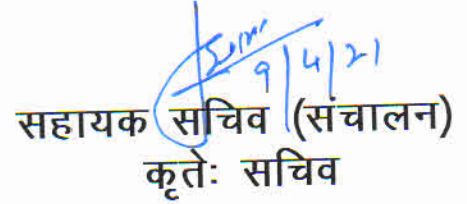 9/4/21
सहायक सचिव (संचालन)
कृतेः सचिव